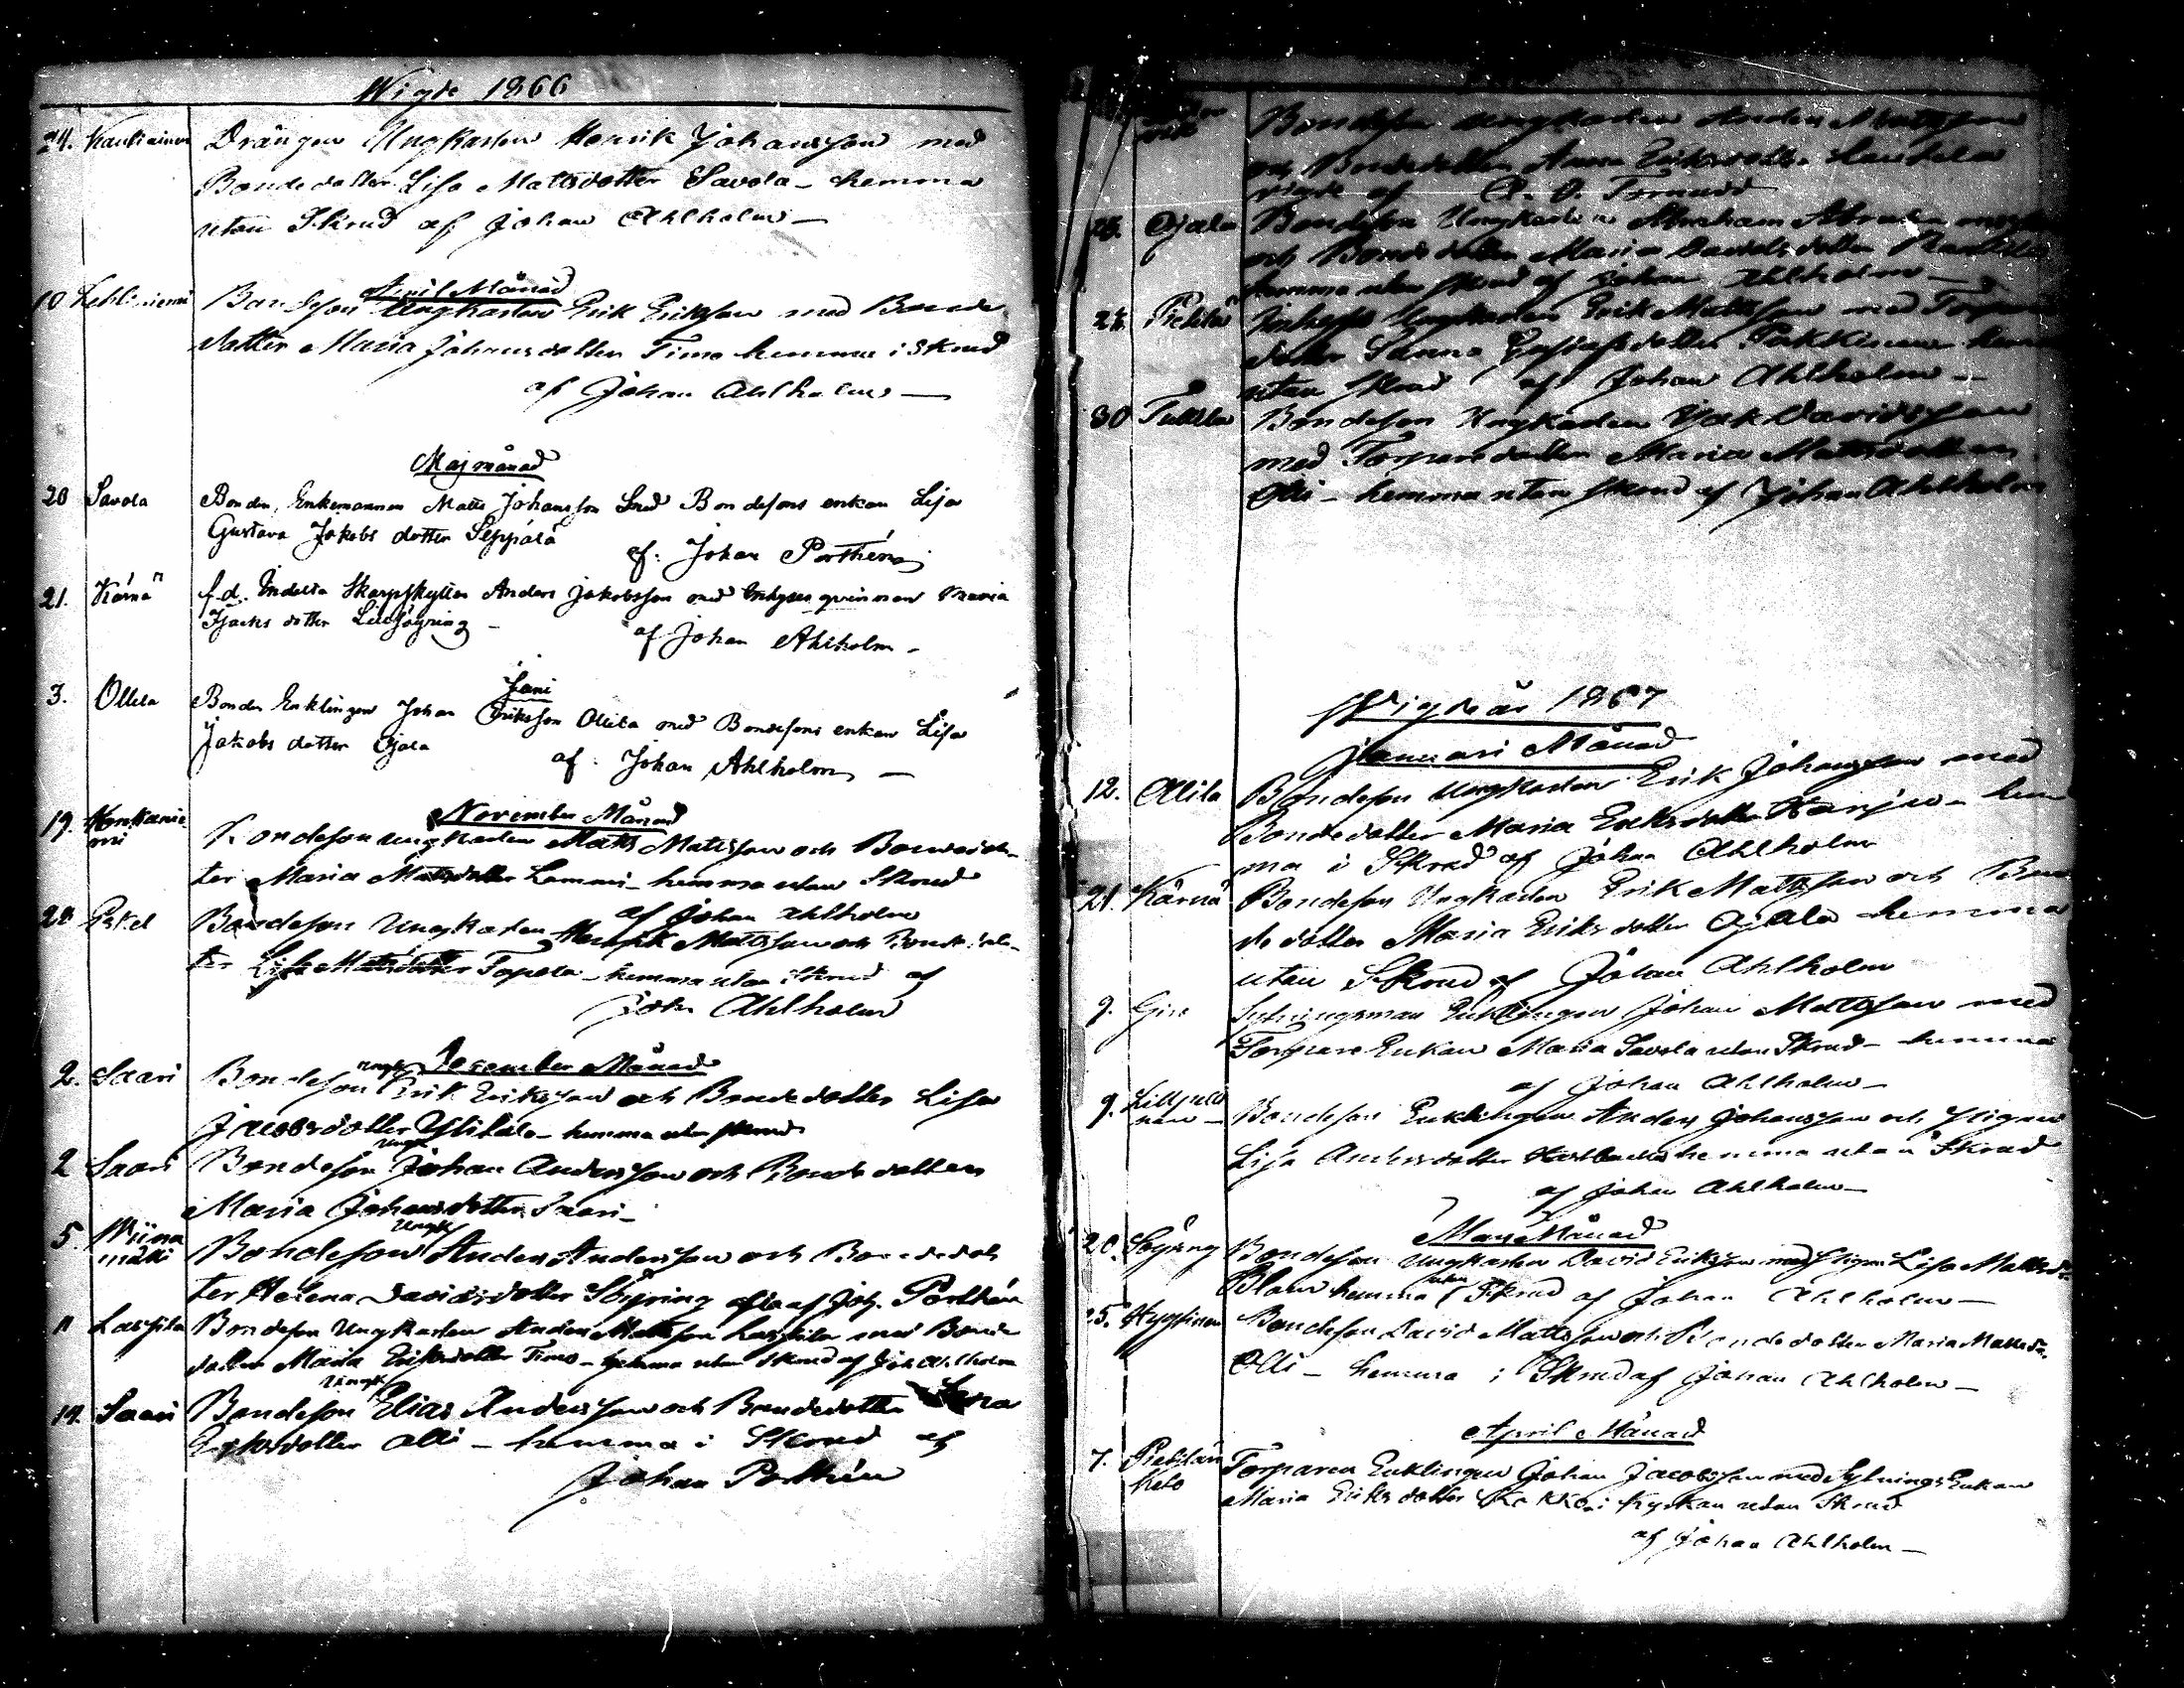 Wigde 1866
24. Kautiainen Drängen Ungkarlen Henrik Johansson med
Bondedotter Lisa Mattsdotter Savola - hemma
utan Skrud af Johan Ahlholm -
April Månad
10 Lehtiniemi Bondeson Ungkarlen Erik Eriksson med Bonde
dotter Maria Johansdotter Timo hemma i Skrud
af Johan Ahlholm -
Maj månad
20 Savola Bonden, Enkemannen Matts Johansson med Bondesons enkan Lisa
Gustava Jakobs dotter Seppälä
af: Johan Porthén
21. Kärnä f.d. Indelta Skarpskytten Anders Jakobsson med Inhyses qvinnan Maria
Isacks dotter Lillsöyring -
af Johan Ahlholm -
Juni
3. Ollila Bonden Enklingen Johan Eriksson Ollila med Bondesons enkan Lisa
Jakobs dotter Ojala
af: Johan Ahlholm -
November Månad
19. Konkanie
mi Bondeson ungkarlen Matts Mattsson och Bondedot-
ter Maria Mattsdotter Lammi - hemma utan Skrud
af Johan Ahlholm
28 Bondeson Ungkarlen Henrik Mattsson och Bondedot-
ter Lisa Mattsdotter Topola - hemma utan Skrud af
Joh. Ahlholm
December Månad
2. Saari Bondeson Ungk Erik Eriksson och Bondedotter Lisa
Jacobsdotter Ylikala - hemma utan skrud
2 Saari Bondeson Ungk Johan Andersson och Bonde dotter
Maria Johansdotter Saari -
5. Wiina
mäki Bondeson Ungk Anders Andersson och Bondedot
ter Helena Davidsdotter Söyring af Joh. Porthén
11 Lassila Bondeson Ungkarlen Anders Mattsson Lassila med Bonde
dotter Maria Eriksdotter Timo - hemma utan Skrud af Joh Ahlholm
14. Saari Bondeson Ungk Elias Andersson och Bondedotter
Eriksdotter Olli - hemma i Skrud af
Johan Porthén
Bondeson Ungkarlen Anders Mattsson
och Bondedotter Anna Eriksdotter
vigde af A. O. Törnudd
Ojala Bondeson Ungkarlen Abraham
och Bonde dotter Maria Davidsdotter
hemma utan skrud af Johan Ahlholm -
Pietilä Ungkarlen Erik Mattsson med Torpare
dotter Sanna Gustafsdotter Pakkanen
utan skrud af Johan Ahlholm -
30 Tullila Bondeson Ungkarlen Isak Davidsson
med Torparedotter Maria Mattsdotter
Olli - hemma utan skrud af Johan Ahlholm
Wigde år 1867
Januari Månad
12. Ollila Bondeson Ungkarlen Erik Johansson med
Bondedotter Maria Eriksdotter Harju - hem
ma i Skrud af Johan Ahlholm
21. Kärnä Bondeson Ungkarlen Erik Mattsson och Bon
de dotter Maria Eriks dotter Ojala hemma
utan Skrud af Johan Ahlholm
9. Sytningsman Enklingen Johan Mattsson med
Torpare Enkan Maria Savola utan Skrud - hemma
af Johan Ahlholm -
9. Bondeson Enklingen Anders Johansson och Pigan
Lisa Andersdotter hemma utan Skrud
af Johan Ahlholm -
Månad
20. Söyring Bondeson Ungkarlen David Eriksson med Pigan Lisa Mattsdr
Blom hemma utan Skrud af Johan Ahlholm -
25. Bondeson David Mattsson och Bondedotter Maria Mattsdr.
Olli - hemma i Skrud af Johan Ahlholm -
April Månad
7. Pietilän
keto Torparen Enklingen Johan Jacobsson med Sytnings Enkan
Maria Eriks dotter i kyrkan utan Skrud
af Johan Ahlholm -